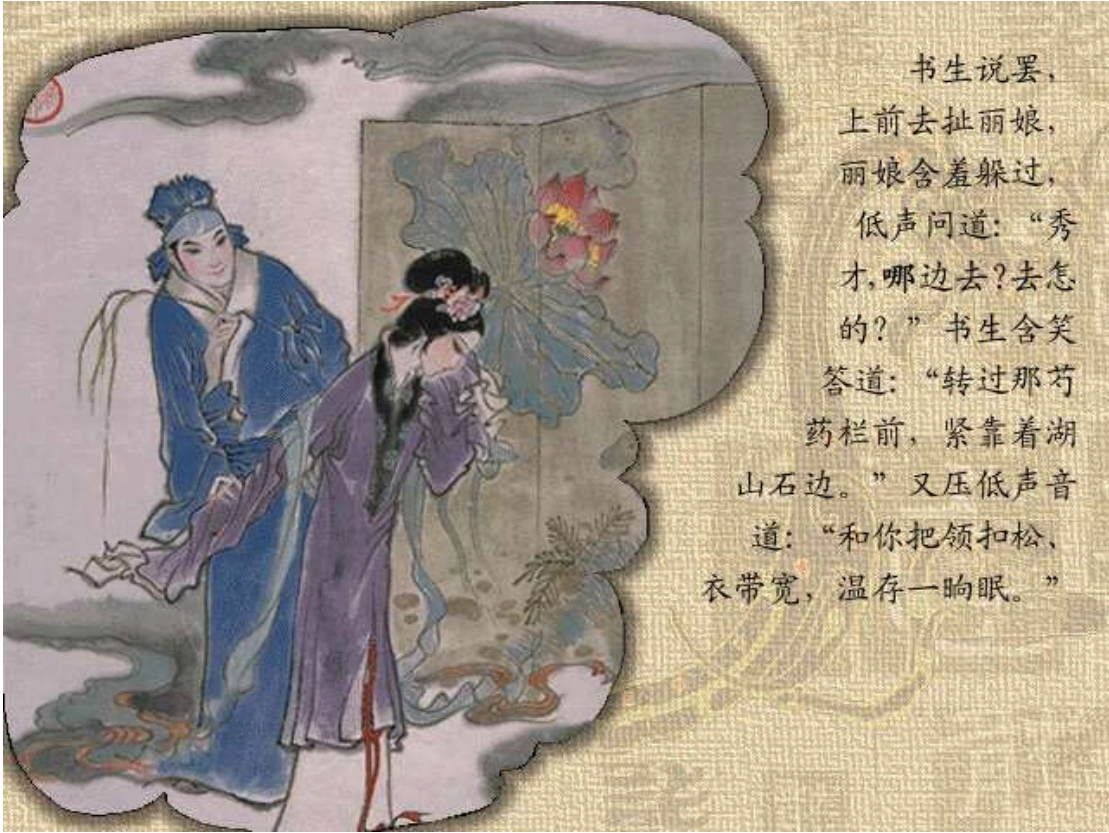 书生说罢，
上前去扯丽娘，
丽娘含羞躲过，
低声问道：“秀
才，哪边去？去怎
的？” 书生含笑
答道：“转过那芍
药栏前，紧靠着湖
山石边。” 又压低声音
道：“和你把领扣松、
衣带宽，温存一晌眠。”